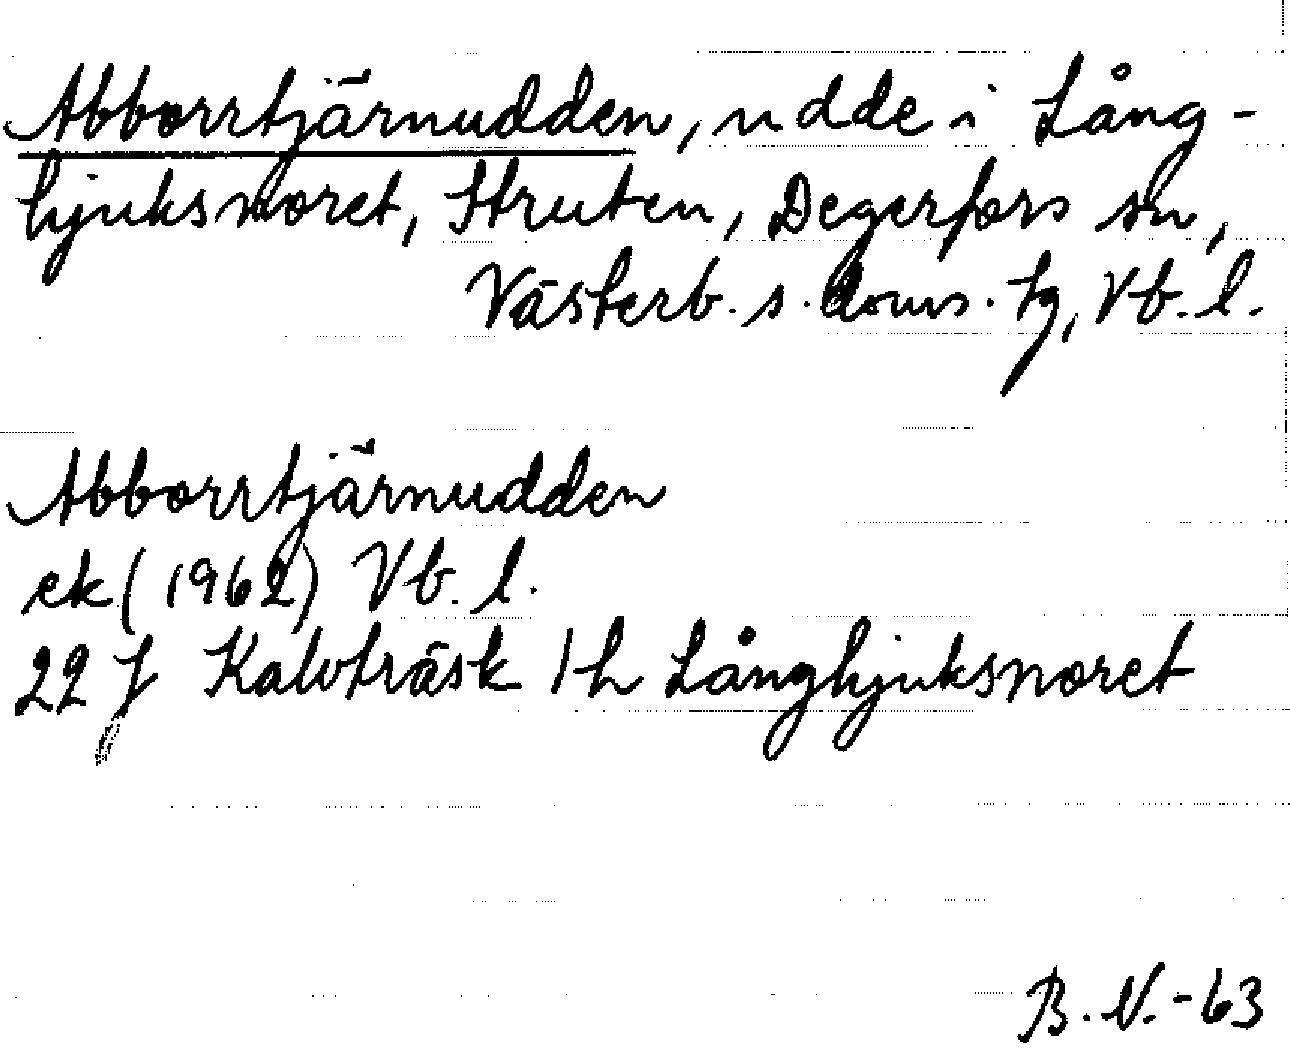 Abborrtjärnudden, udde i Lång-
hjuksnoret, Struten, Degerfors sn,
Västerb. s. doms. tg, Vb. l.
Abborrtjärnudden
ek (1962) Vb. l.
22 J Kalvträsk 1 h Långhjuksnoret
B. N. -63